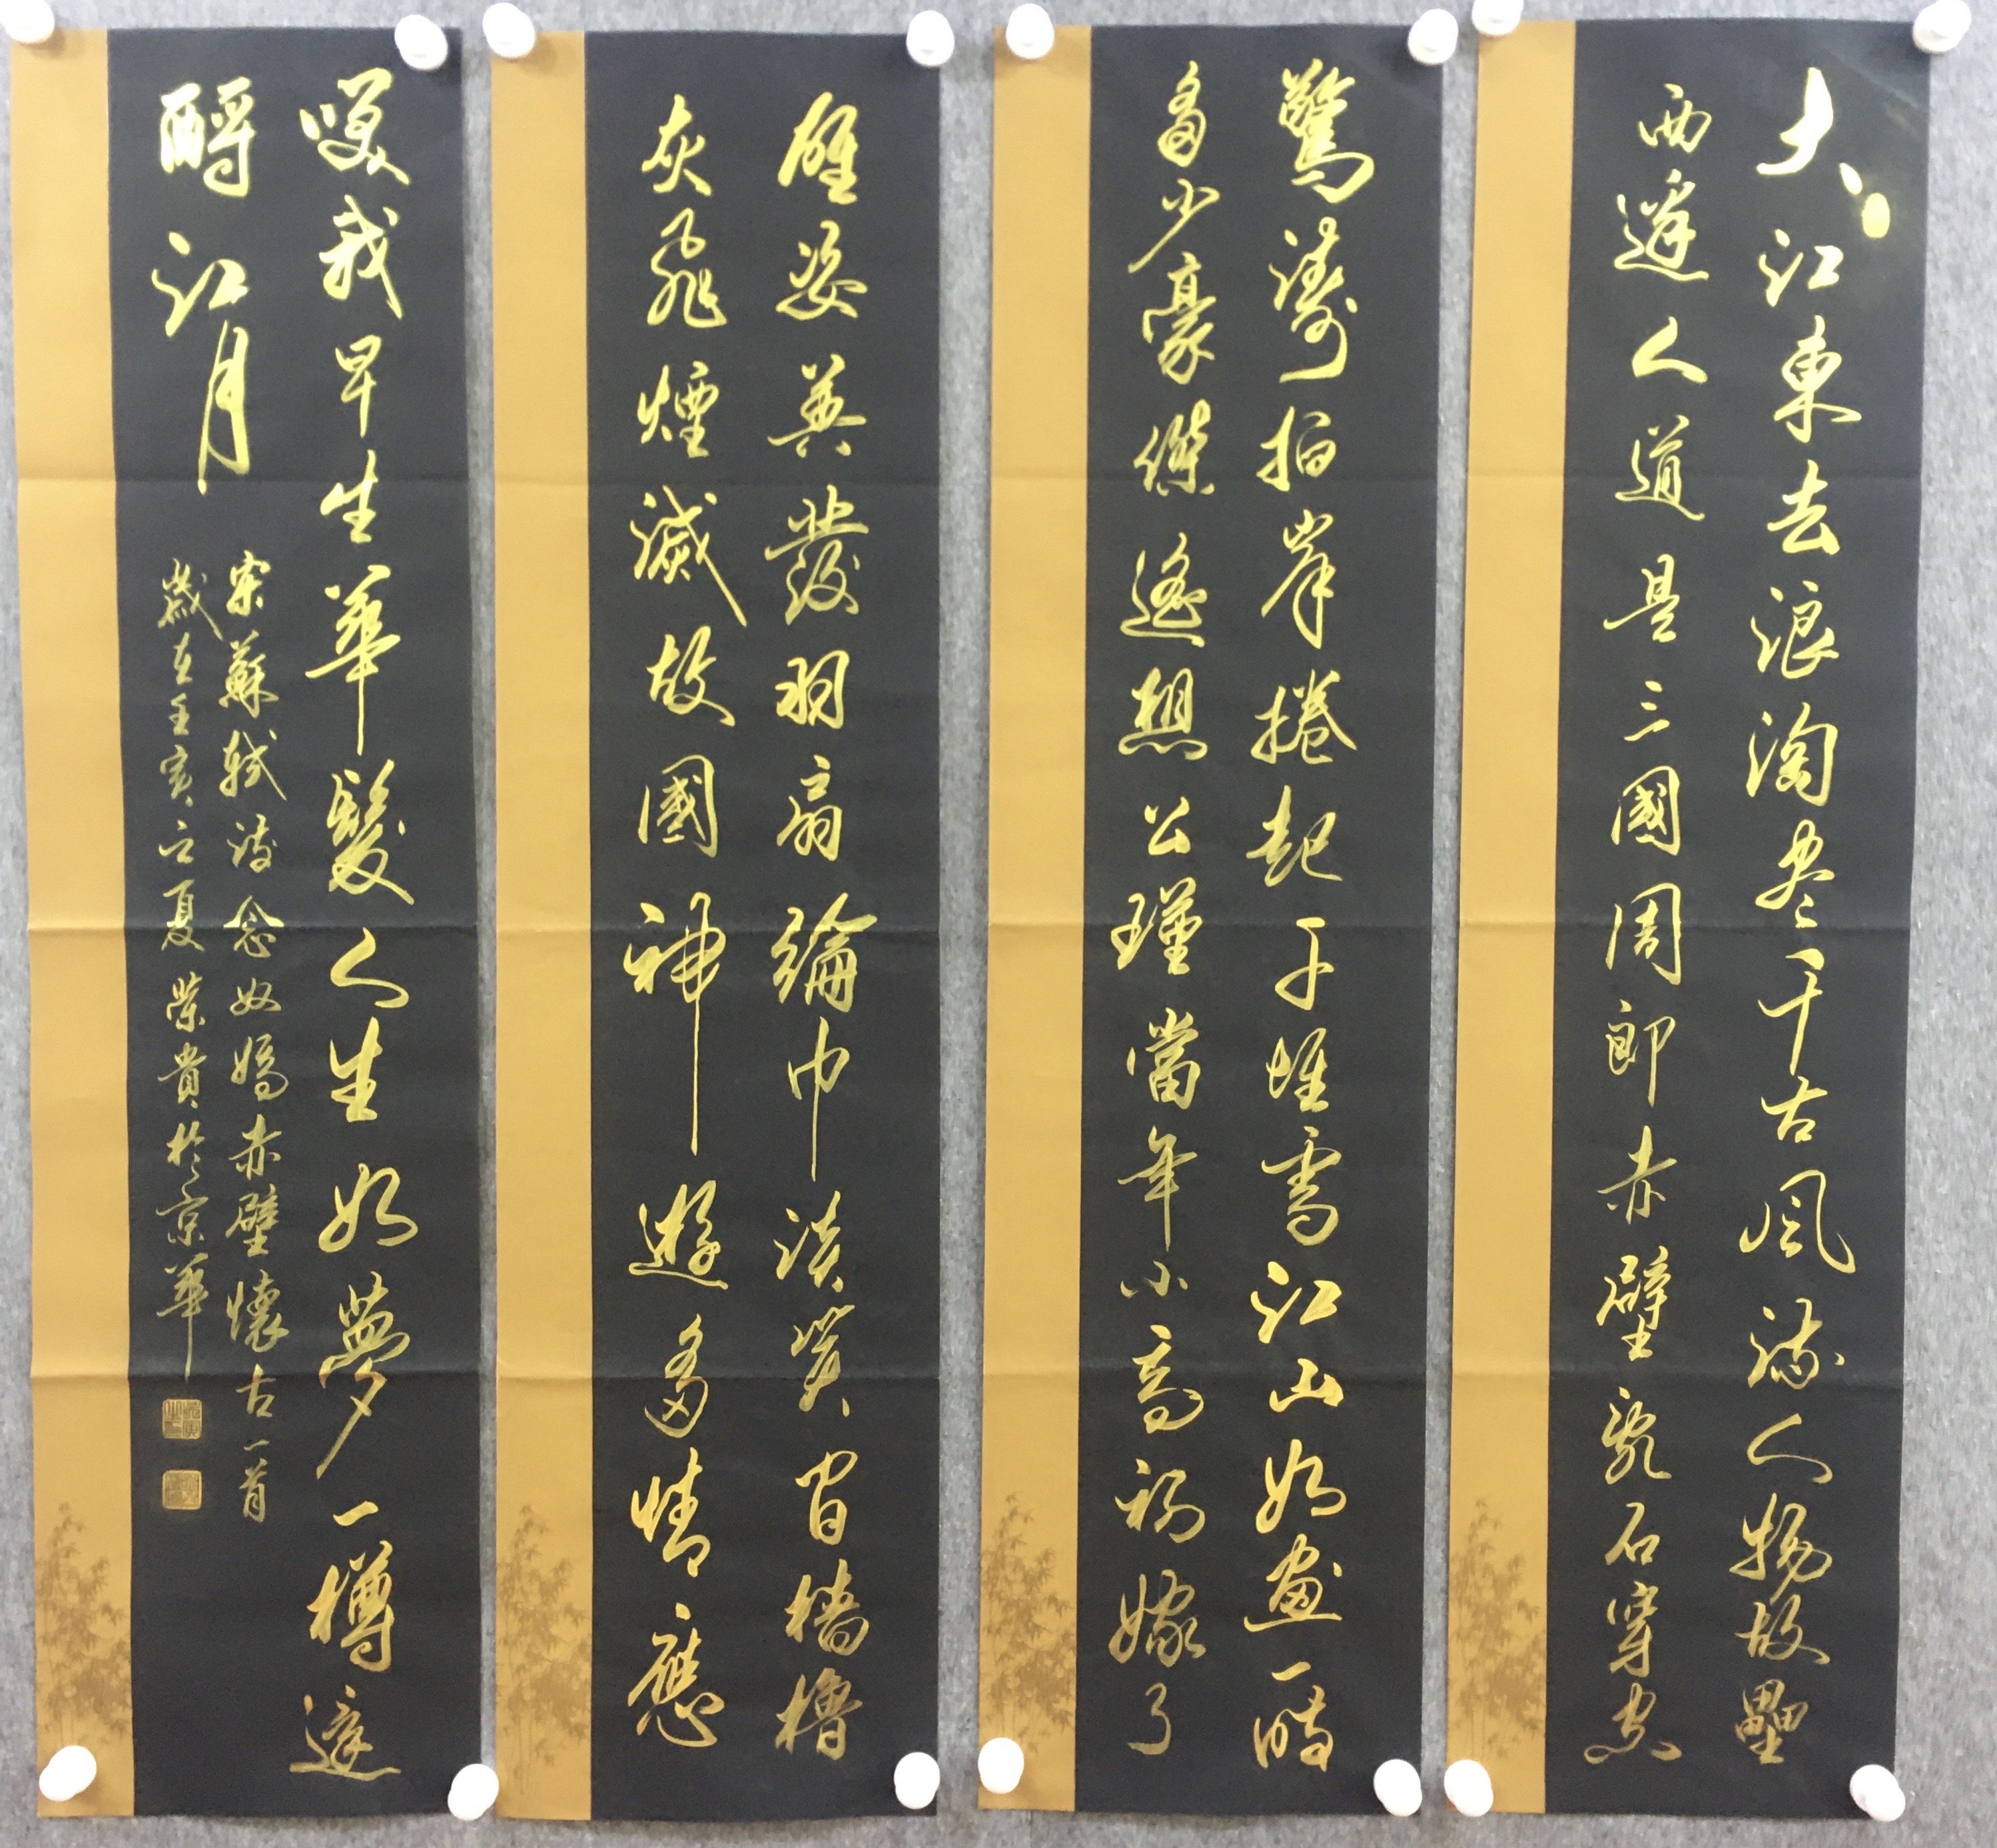 大江東去浪淘尽千古風流人物故壘
西邊人道是三國周郎赤壁亂石穿空
驚濤拍岸捲起千堆雪江山如畫一時
多少豪傑遙想公瑾當年小喬初嫁了
雄姿英發羽扇綸巾談笑間檣櫓
灰飛煙滅故國神遊多情應
笑我早生華髮人生如夢一樽還
酹江月
宋蘇軾詩念奴嬌赤壁懷古一首
歲在壬寅立夏榮貴於京華